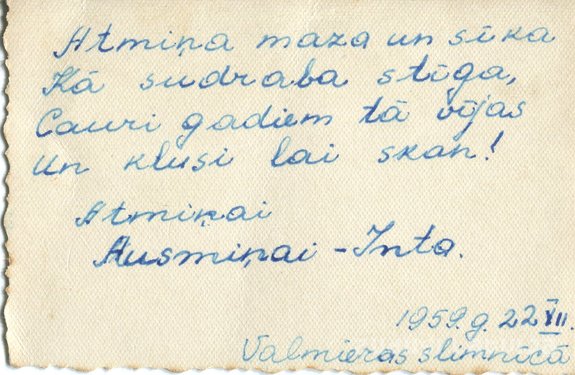 Atmiņa maza un sīka
Kā sudraba stīga,
Cauri gadiem tā vījas
Un klusi lai skan!
Atmiņai
Ausmiņai - Inta.
1959.g. 22 XII.
Valmieras slimnīcā